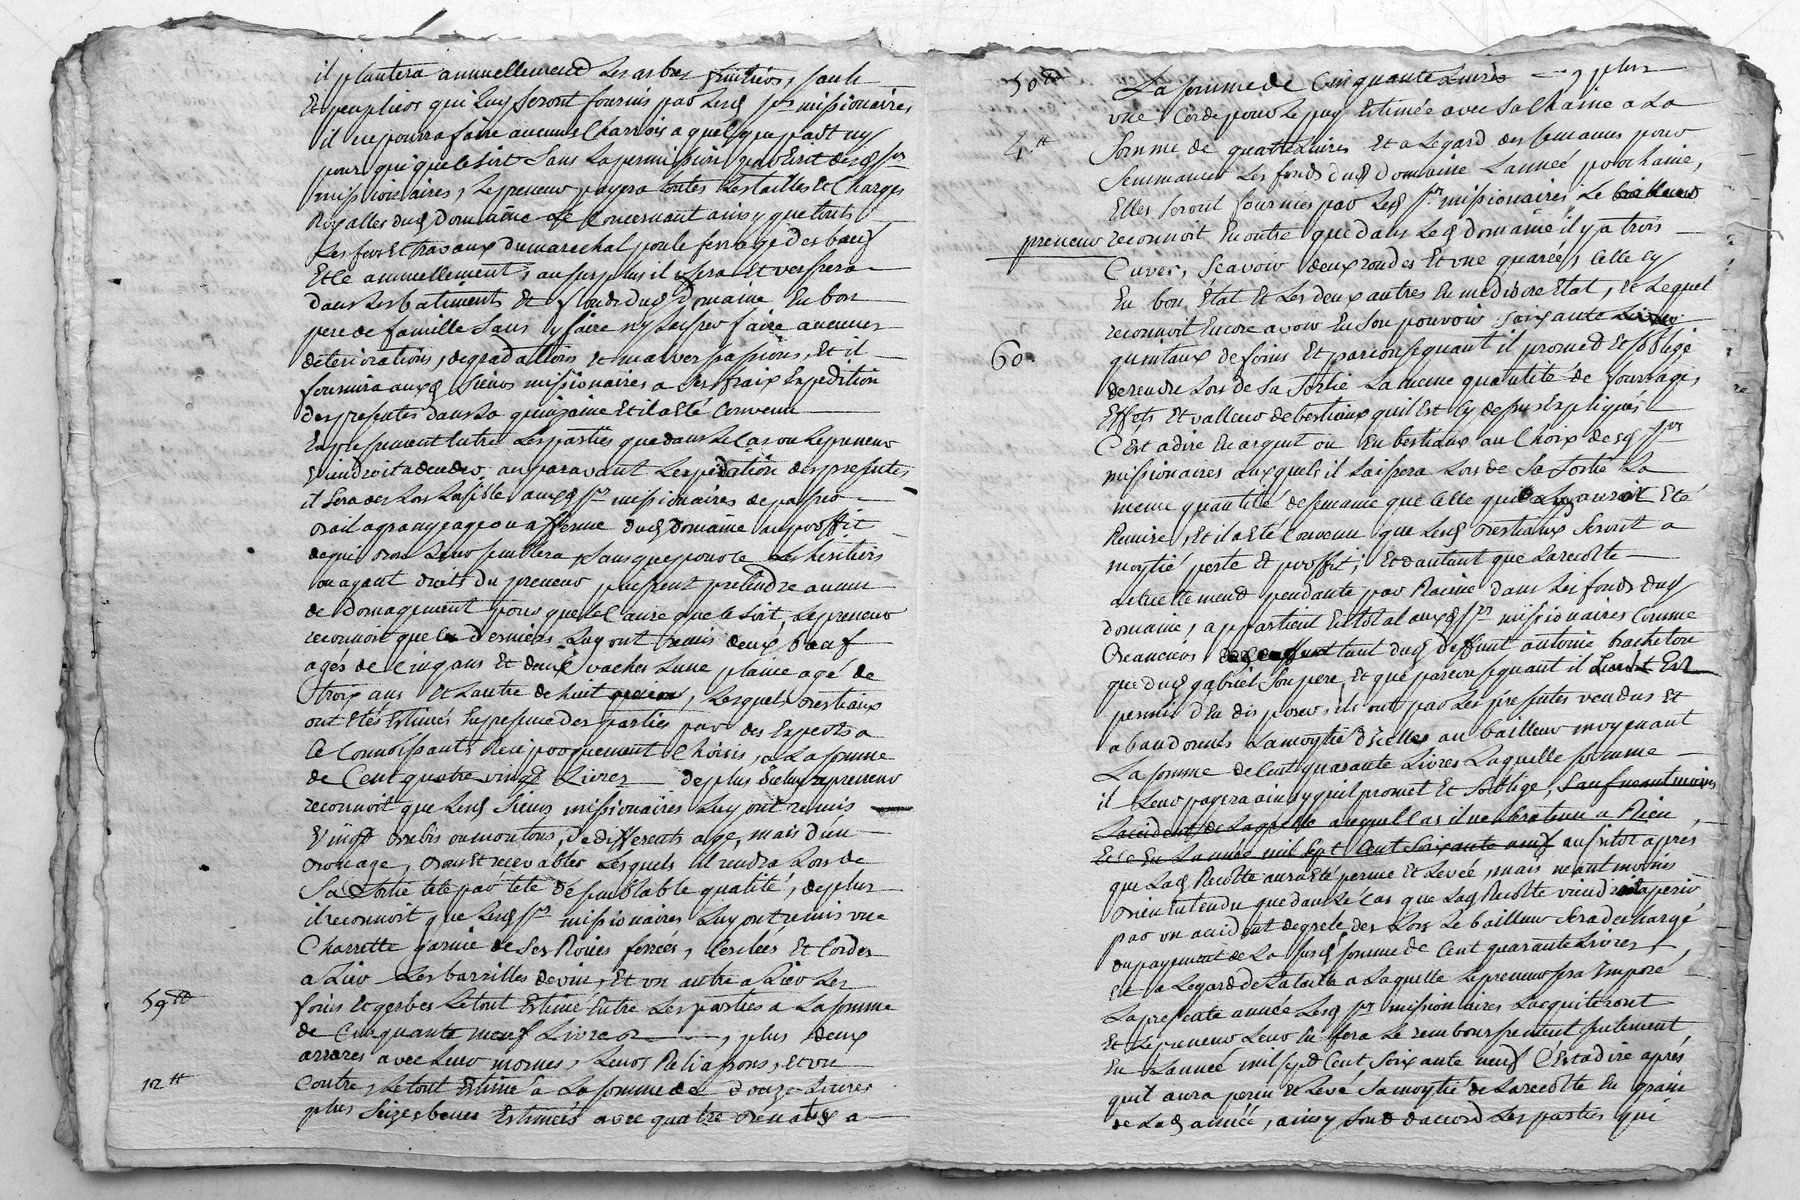 il plantera annuellement les arbres fruitiers, saule
Et peupliers qui luy seront fournis par lesd srs missionaires,
il ne pourra faire aucuns Charrois a quelque part ny
pour qui que ce soit sans la permission par Ecrit desd srs
missionaires, Le preneur payera toutes Les tailles et Charges
Royalles dud Domaine le Concernant ainsy que touts
Les fers et travaux du marechal pour le ferrage des bœufs
Et ce annuellement, au surplus il usera Et versera
dans les batiments Et fonds dud domaine En bon
pere de famille sans y faire ny souffrir faire aucunes
deteriorations, degradations et malversassions, Et il
fournira auxd sieurs missionaires a ses fraix Expedition
des presentes dans La quinzaine Et il a Eté Convenu
Expressement Entre Les parties que dans le Cas ou Le preneur
viendroit a deceder, auparavant L'expiration des presentes
il sera des Lors Loisible auxd srs missionaires de passer
bail a grangeage ou afferme dud Domaine au proffit
de qui bon Leur semblera sans que pour ce les heritiers
ou ayant droits du preneur puissent pretendre aucun
dedomagement pour quelle Cause que ce soit, Le preneur
reconnoit que les derniers Luy ont remis deux bœuf
agés de Cinq ans Et deux vaches Lune pleine agé de
trois ans et L'autre de huit, Lesquels bestiaux
ont Etés Estimés En presence des parties par des Experts a
Ce Connoissants Reciproquement Choisis, a La somme
de Cent quatre vingt Livres de plus Led preneur
reconnoit que Lesd sieurs missionaires Luy ont remis
Vingt brebis ou moutons, de differents age, mais d'un
bon age, bons Et recevables Lesquels il rendra Lors de
Sa sortie tete par tete de semblable qualité, de plus
il reconnoit, que Lesd srs missionaires Luy ont remis une
Charrette garnie de ses Roües ferrées, Cerclées Et Cordes
a Lier Les barrilles de vin, Et un autre a Lier Les
59tt
foins Et gerbes Le tout Estimé Entre Les parties a La somme
de Cinquante neuf Livres, plus deux
arrares avec Leur mornes, Leurs Reliassons, Et un
12tt
Contre, Le tout Estimé a La somme de douze Livres
plus seize Estimées avec quatre a
50tt
La somme de Cinquante Livres, plus
une Corde pour le puy Estimée avec sa Chaine a La
4tt
Somme de quatre Livres Et a Legard des semances pour
Semmancer Les fonds dud Domaine Lannée prochaine,
Elles seront fournies par Lesd srs missionaires, Le bailleur
preneur
reconnoit En outre que dans Led domaine il y a trois
Cuves, Scavoir deux rondes Et une quarrée, Celle cy
En bon Etat Et Les deux autres En mediocre Etat, Et Lequel
reconnoit Encore avoir En son pouvoir soixante
60
quintaux de foins Et par consequant il promet Et s'oblige
de rendre Lors de Sa Sortie La meme quantité de fourrages,
Effets Et valleur de bestiaux quil Est Cy dessus Expliqués
C'est a dire En argent ou En bestiaux au Choix desd srs
missionaires auxquels il Laissera Lors de Sa Sortie La
meme quantité de semance que Celle qui Luy auroit Eté
Remise, Et il a Eté Convenu que Lesd bestiaux seront a
moytié perte Et proffit, Et dautant que La recolte
actuellement pendante par Racine dans Les fonds dud
domaine, appartient En total auxd srs missionaires Comme
Creanciers tant dud deffunt antoine bracheton
que dud gabriel Son pere, Et que par consequant il Est
permis d'En disposer, ils ont par Les presentes vendus Et
abandonnés La moytié dicelles au bailleur moyenant
La somme de Cent quarante Livres Laquelle somme
il Leur payera ainsy quil promet Et s'oblige, sauf neantmoins
Laccident de La grele auquel Cas il ne sera tenu a Rien,
Et ce En Lannée mil sept Cent soixante neuf aussitot apres
que Lad Recolte aura Eté percue Et Levée, mais neantmoins
bien Entendu que dans le Cas que Lad Recolte viendroit a perir
par un accident de grele des Lors Le bailleur Sera dechargé
du payement de La susd somme de Cent quarante Livres,
Et a Legard de La taille a Laquelle Le preneur sera Imposé,
La presente année Lesd srs missionaires Lacquiteront
Et Le preneur Leur En fera Le remboursement seulement
En Lannée mil sept Cent soixante neuf C'est a dire aprés
qu'il aura percu Et Levé Sa moytié de La recolte En grain
de Lad année, ainsy sont d'accord Les parties qui